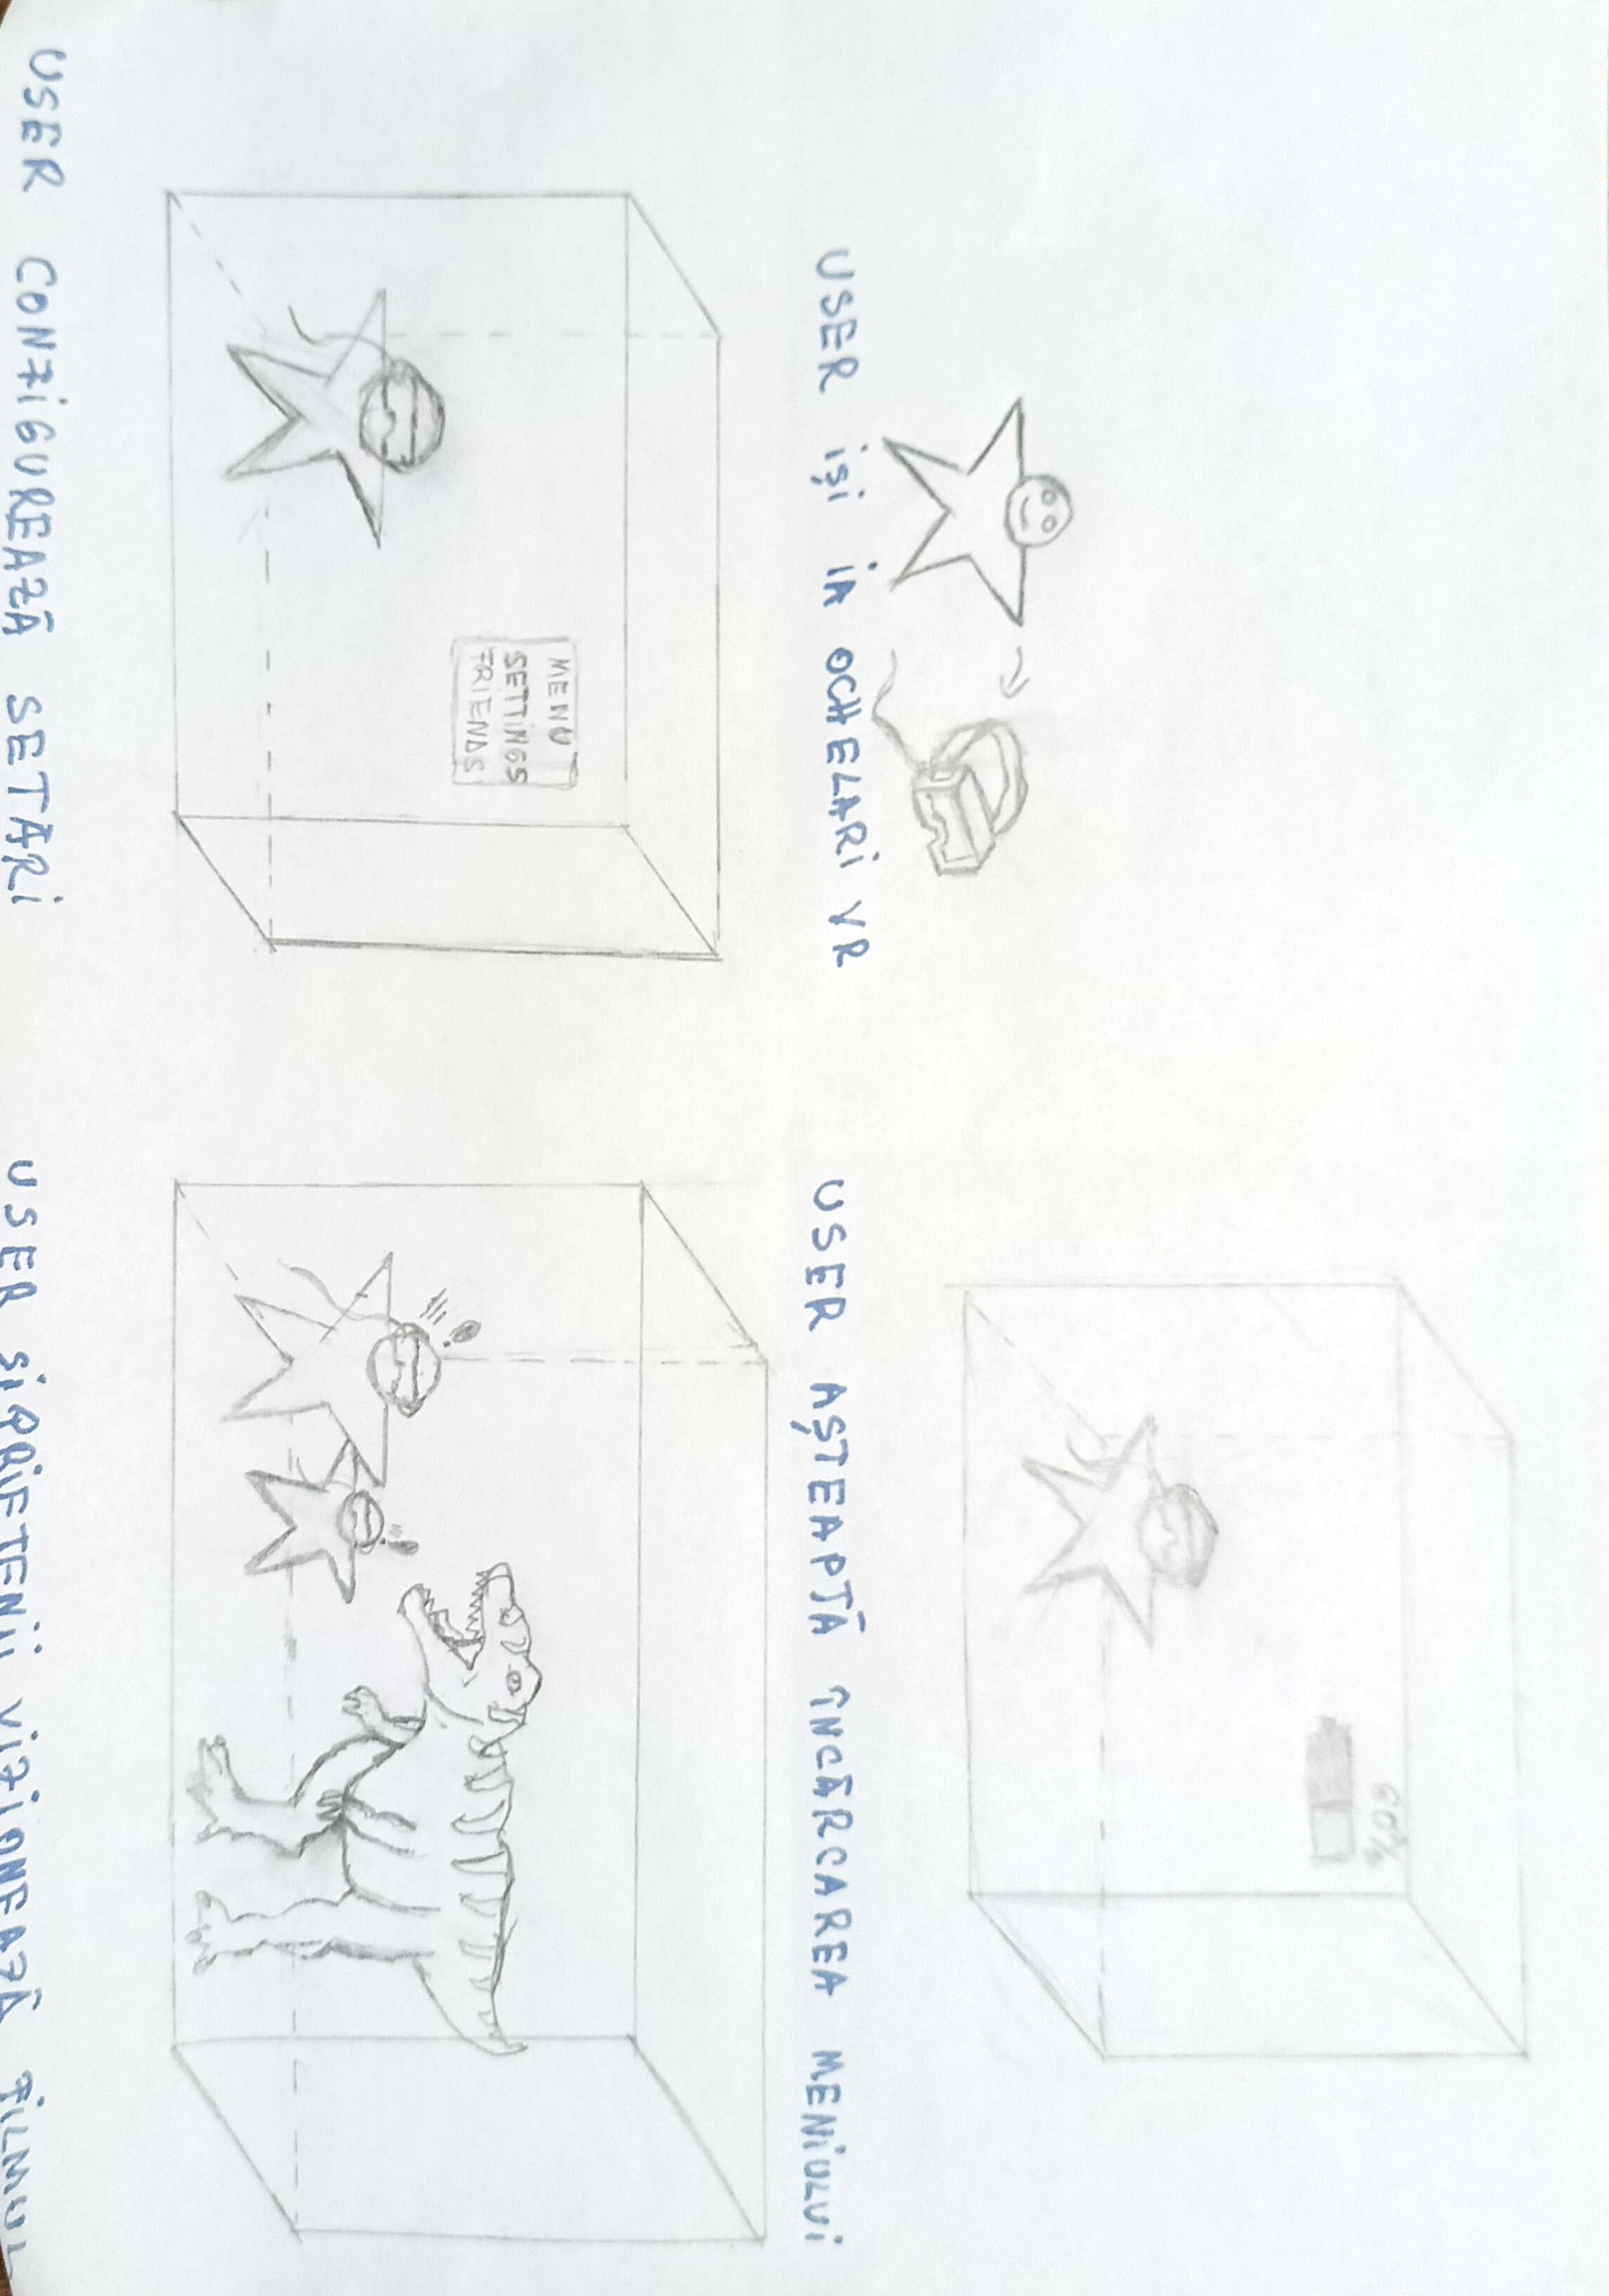 USER IȘI IA OCHELARI VR
60%
USER AȘTEAPTĂ ÎNCĂRCAREA MENIULUI
MENU
SETTINGS
FRIENDS
USER CONFIGUREAZĂ SETĂRI
USER SI PRIETENII VIZIONEAZĂ FILMUL